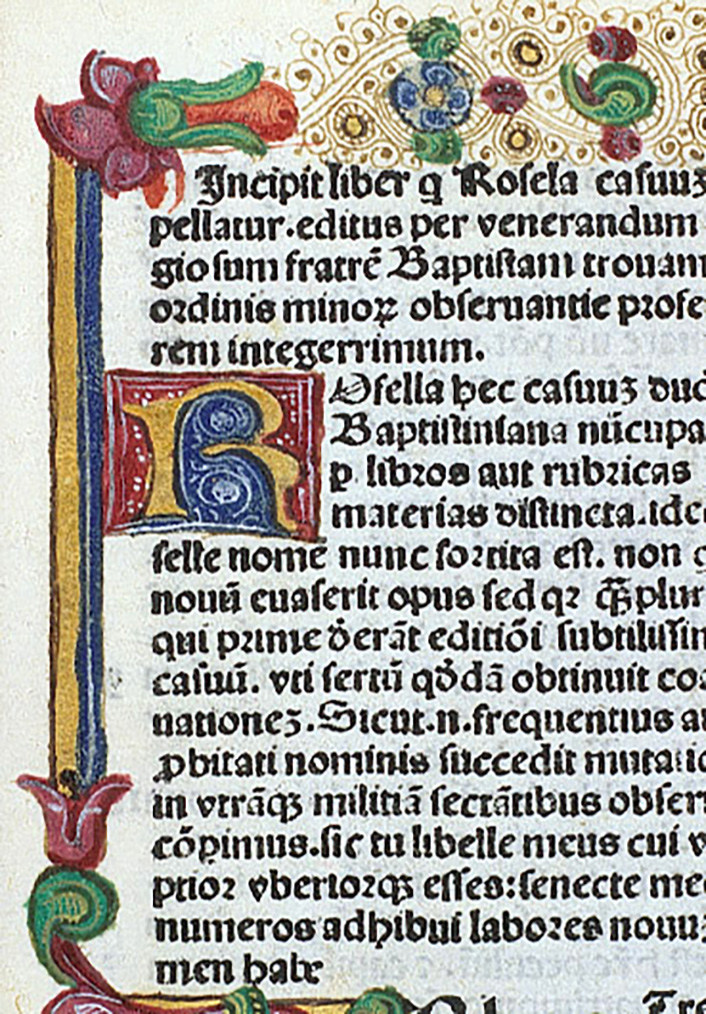 Incipit liber q̄ Rosela casuuꝫ
pellatur.editus per venerandum
giosum fratrē Baptistam trouam
ordinis minoꝝ obseruantie profe
rem integerrimum.
ROsella hec casuuꝫ duc
Baptistiniana nūcupa
p libros aut rubricas
materias distincta.idc
selle nome nunc sortita est. non
nouū euaserit opus sed qꝛ
qui prime dederāt editiōi subtilissim
casuū. vti sertū qddā obtinuit co
nationeꝫ.Sicut.n.frequentius a
ꝓbitati nominis succedit mutatio
in vtrāqꝫ militiā sectātibus obser
cōpimus.sic tu libelle meus cui v
ptior vbertorqꝫ esses:senecte me
numeros adhibui labores nouuꝫ
men habe